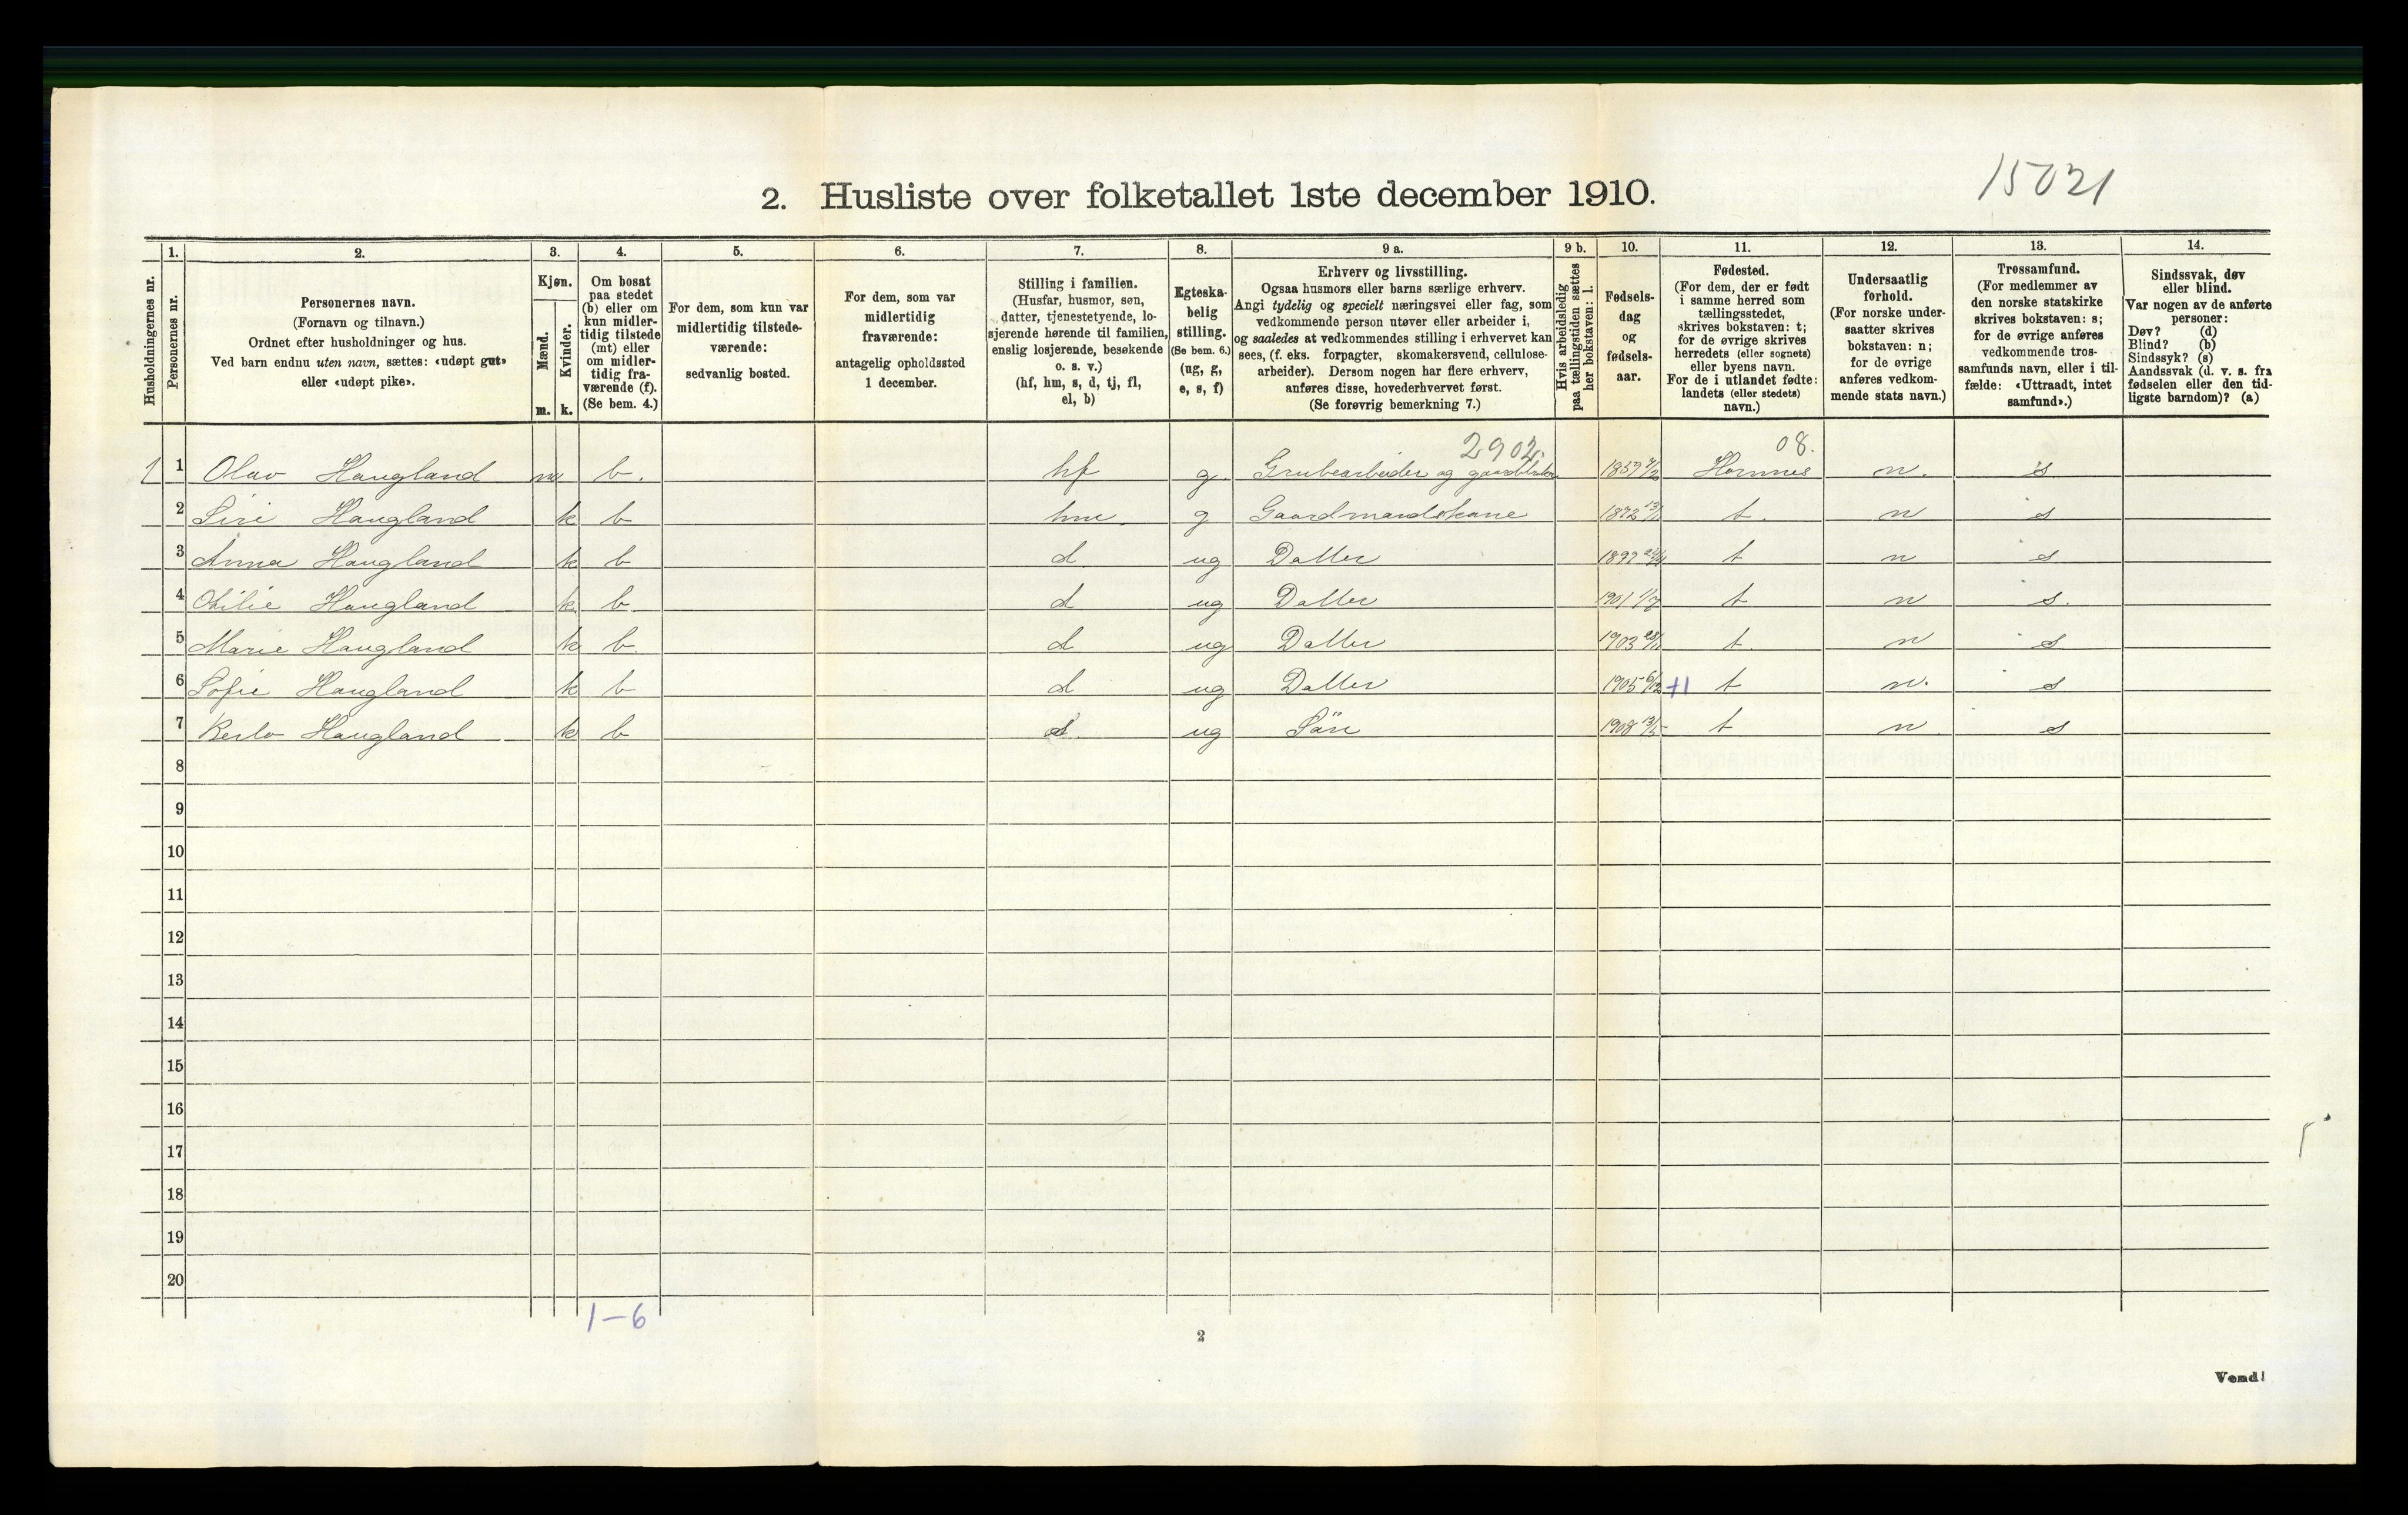 15021
2. Husliste over folketallet 1ste december 1910.
Husholdningernes nr.
1.
Personernes nr.
2.
Personernes navn.
(Fornavn og tilnavn.)
Ordnet efter husholdninger og hus.
Ved barn endnu uten navn, sættes: «udøpt gut»
eller «udøpt pike».
3.
Kjøn.
Mænd.
Kvinder.
m. k.
4.
Om bosat
paa stedet
(b) eller om
kun midler-
tidig tilstede
(mt) eller
om midler-
tidig fra-
værende (f).
(Se bem. 4.)
5.
For dem, som kun var
midlertidig tilstede-
værende:
sedvanlig bosted.
6.
For dem, som var
midlertidig
fraværende:
antagelig opholdssted
1 december.
7.
Stilling i familien.
(Husfar, husmor, søn,
datter, tjenestetyende, lo-
sjerende hørende til familien,
enslig losjerende, besøkende
o. s. v.)
(hf, hm, s, d, tj, fl,
el, b)
8.
Egteska-
belig
stilling.
(Se bem. 6.)
(ug, g,
e, s, f)
9 a.
Erhverv og livsstilling.
Ogsaa husmors eller barns særlige erhverv.
Angi tydelig og specielt næringsvei eller fag, som
vedkommende person utøver eller arbeider i,
og saaledes at vedkommendes stilling i erhvervet kan
sees, (f. eks. forpagter, skomakersvend, cellulose-
arbeider). Dersom nogen har flere erhverv,
anføres disse, hovederhvervet først.
(Se forøvrig bemerkning 7.)
9 b.
Hvis arbeidsledig
paa tællingstiden sættes
her bokstaven: l.
10.
Fødsels-
dag
og
fødsels-
aar.
11.
Fødested.
(For dem, der er født
i samme herred som
tællingsstedet,
skrives bokstaven: t;
for de øvrige skrives
herredets (eller sognets)
eller byens navn.
For de i utlandet fødte:
landets (eller stedets)
navn.)
12.
Undersaatlig
forhold.
(For norske under-
saatter skrives
bokstaven: n;
for de øvrige
anføres vedkom-
mende stats navn.)
13.
Trossamfund.
(For medlemmer av
den norske statskirke
skrives bokstaven: s;
for de øvrige anføres
vedkommende tros-
samfunds navn, eller i til-
fælde: «Uttraadt, intet
samfund».)
14.
Sindssvak, døv
eller blind.
Var nogen av de anførte
personer:
Døv? (d)
Blind? (b)
Sindssyk? (s)
Aandssvak (d. v. s. fra
fødselen eller den tid-
ligste barndom)? (a)
2902. 08.
1 1 Olav Haugland m b. hf g. Grubearbeider og 1859 Hornnes n. s
2 Siri Haugland k b hm. g Gaardmandskone 1872 t. n s
3 Anna Haugland k b d ug Datter 1897 t n s
4 Otilie Haugland k. b. d ug Datter 1901 1/7 t n s.
5 Marie Haugland k b d ug Datter 1903 t. n s
6 Sofie Haugland k b d ug Datter 1905 6/12 +1 t n. s
7 Haugland k b s. ug Sön 1908 t n. s
8
9
10
11
12
13
14
15
16
17
18
19
20
1-6
2
Vend!